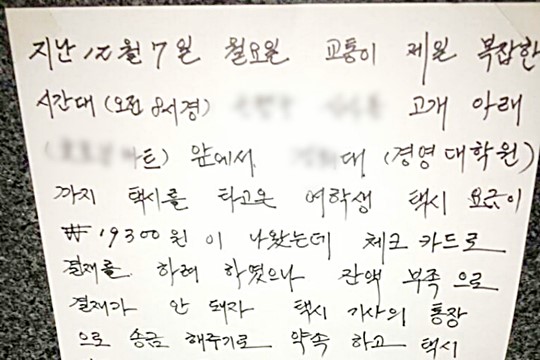 지난 12월 7일 월요일 교통이 제일 복잡한
시간대 (오전 8시경) 고개 아래
트) 앞에서 대 (경영 대학원)
까지 택시를 타고온 여학생 택시 요금이
₩19300원 이 나왔는데 체크 카드로
결재를 하려 하였으나 잔액 부족 으로
결재가 안 돼자 택시 기사의 통장
으로 송금 해주기로 약속 하고 택시